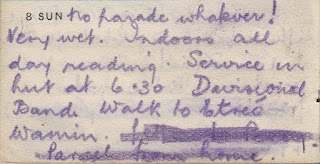 8 SUN No parade whatever!
Very wet. Indoors all
day reading. Service in
hut at 6.30 Divisional
Band. Walk to Etrée
Wamin.
Parcel from home.